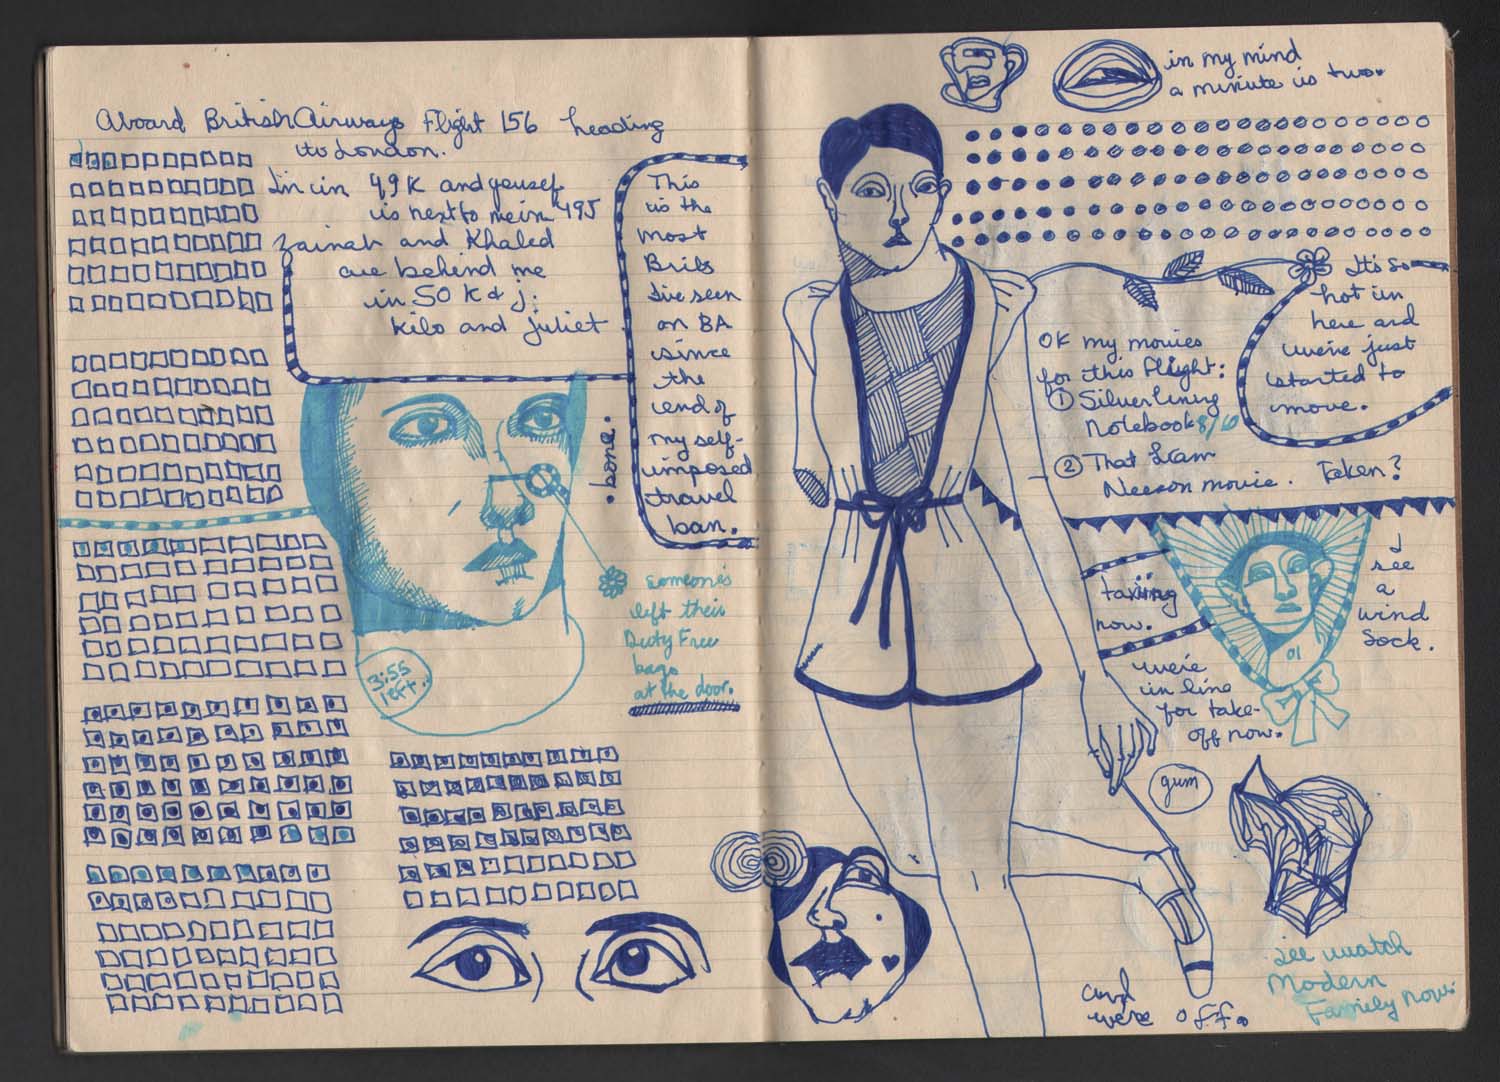 Aboard British Airways Flight 156 heading
to London.
I'm in 49K and yousef
is next to me in 49J
Zainab and Khaled
are behind me
in 50 K & J:
Kilo and Juliet
This
is the
most
Brits
I've seen
on BA
since
the
end of
my self-
imposed
travel
ban.
.bone.
someone's
left their
Duty Free
bags
at the door.
3:55
left.
in my mind
a minute is two.
It's so
hot in
here and
we're just
started to
move.
OK my movies
for this flight:
① Silver lining
Notebook 8/10
② That Liam
Neeson movie. Taken?
taxiing
now.
I
see
a
wind
sock.
01
we're
in line
for take-
off now.
gum
and
we're off.
I'll watch
Modern
Family now.